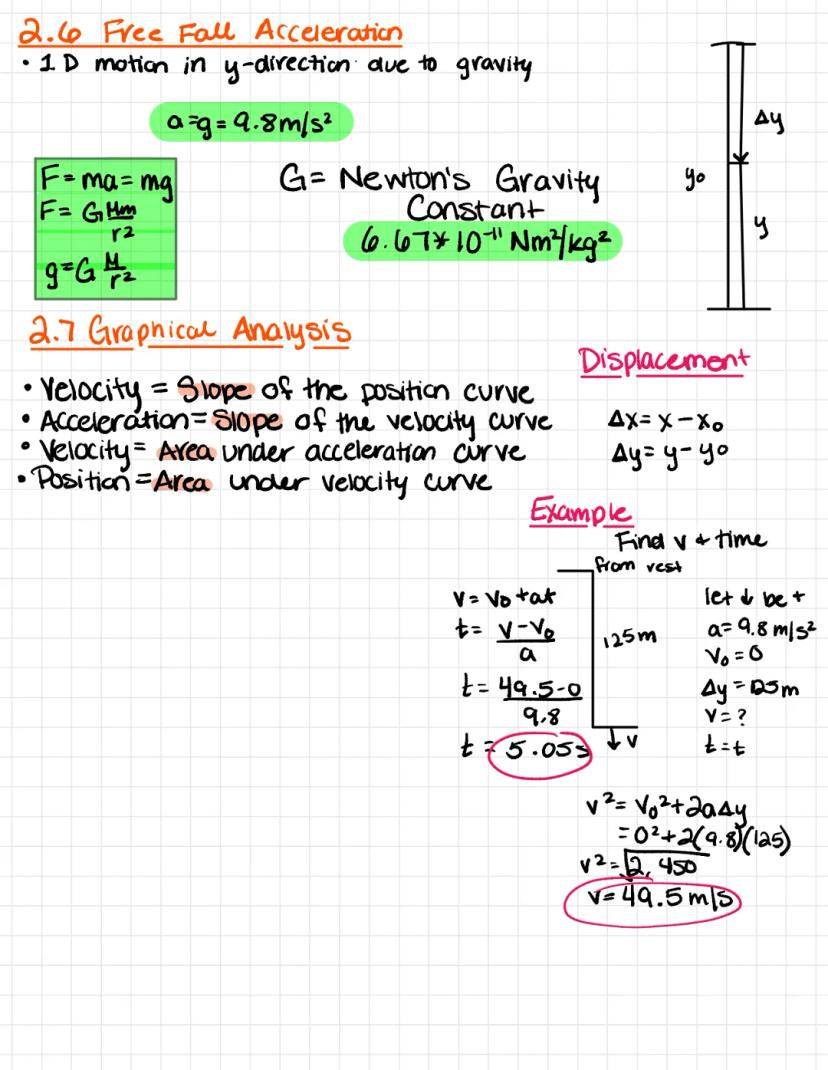 2.6 Free Fall Acceleration
• 1D motion in y-direction due to gravity
a=g=9.8m/s²
F=ma=mg
F= G Mm/r²
g=G M/r²
G= Newton's Gravity
Constant
6.67*10⁻¹¹ Nm²/kg²
Δy
y₀
y
2.7 Graphical Analysis
• Velocity = Slope of the position curve
• Acceleration= Slope of the velocity curve
• Velocity= Area under acceleration curve
• Position=Area under velocity curve
Displacement
Δx= x-x₀
Δy= y-y₀
Example
Find v & time
from rest
v= v₀+at
t= v-v₀/a
t= 49.5-0/9.8
t= 5.05s
125m
v
let ↓ be +
a=9.8m/s²
v₀=0
Δy=125m
v=?
t=t
v²= v₀²+2aΔy
=0²+2(9.8)(125)
v²=√2,450
v=49.5m/s